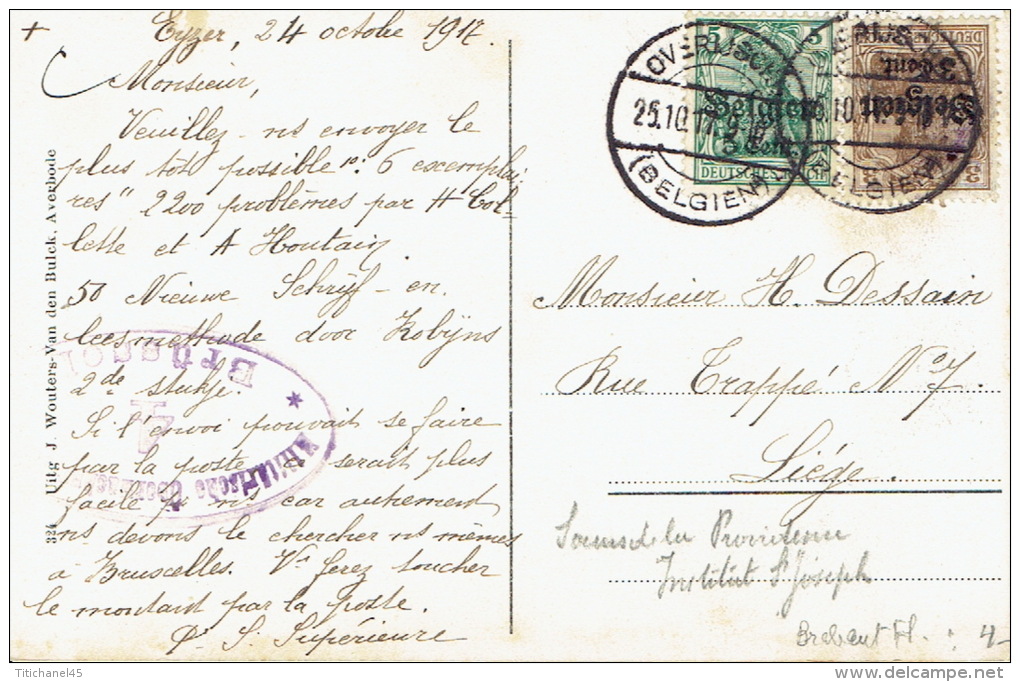 + Eyzer, 24 octobre 1917.
Monsieur,
Veuillez-ns envoyer le
plus tôt possible 1º: 6 exemplai-
res "2200 problèmes par H Col-
lette et A Houtain
50 Nieuwe Schrijf-en
leesmethode door Robijns
2de stukje.
Si l'envoi pouvait se faire
par la poste ce serait plus
facile pr ns car autrement
ns devons le chercher ns mêmes
à Bruxelles. Vs ferez toucher
le montant par la poste.
S. Supérieure
324 Uitg J. Wouters-Van den Bulck, Averbode
BRÜSSEL
Militärische
OVERIJSCHE
25.10.17
(BELGIEN)
5
Belgien
5 Cent.
DEUTSCHES REICH
OVERIJSCHE
25.10.17
(BELGIEN)
3
Belgien
3 Cent.
DEUTSCHES REICH
Monsieur H. Dessain
Rue Trappé Nº 7.
Liége
Soeurs de la Providence
Institut St Joseph
Brabant Fl. : 4-
Titichanel45
www.delcampe.net